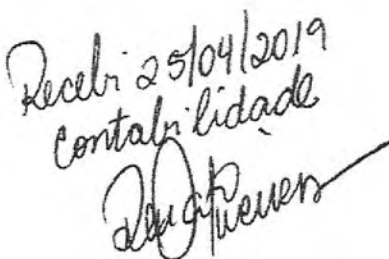 Recebi 25/04/2019
Contabilidade